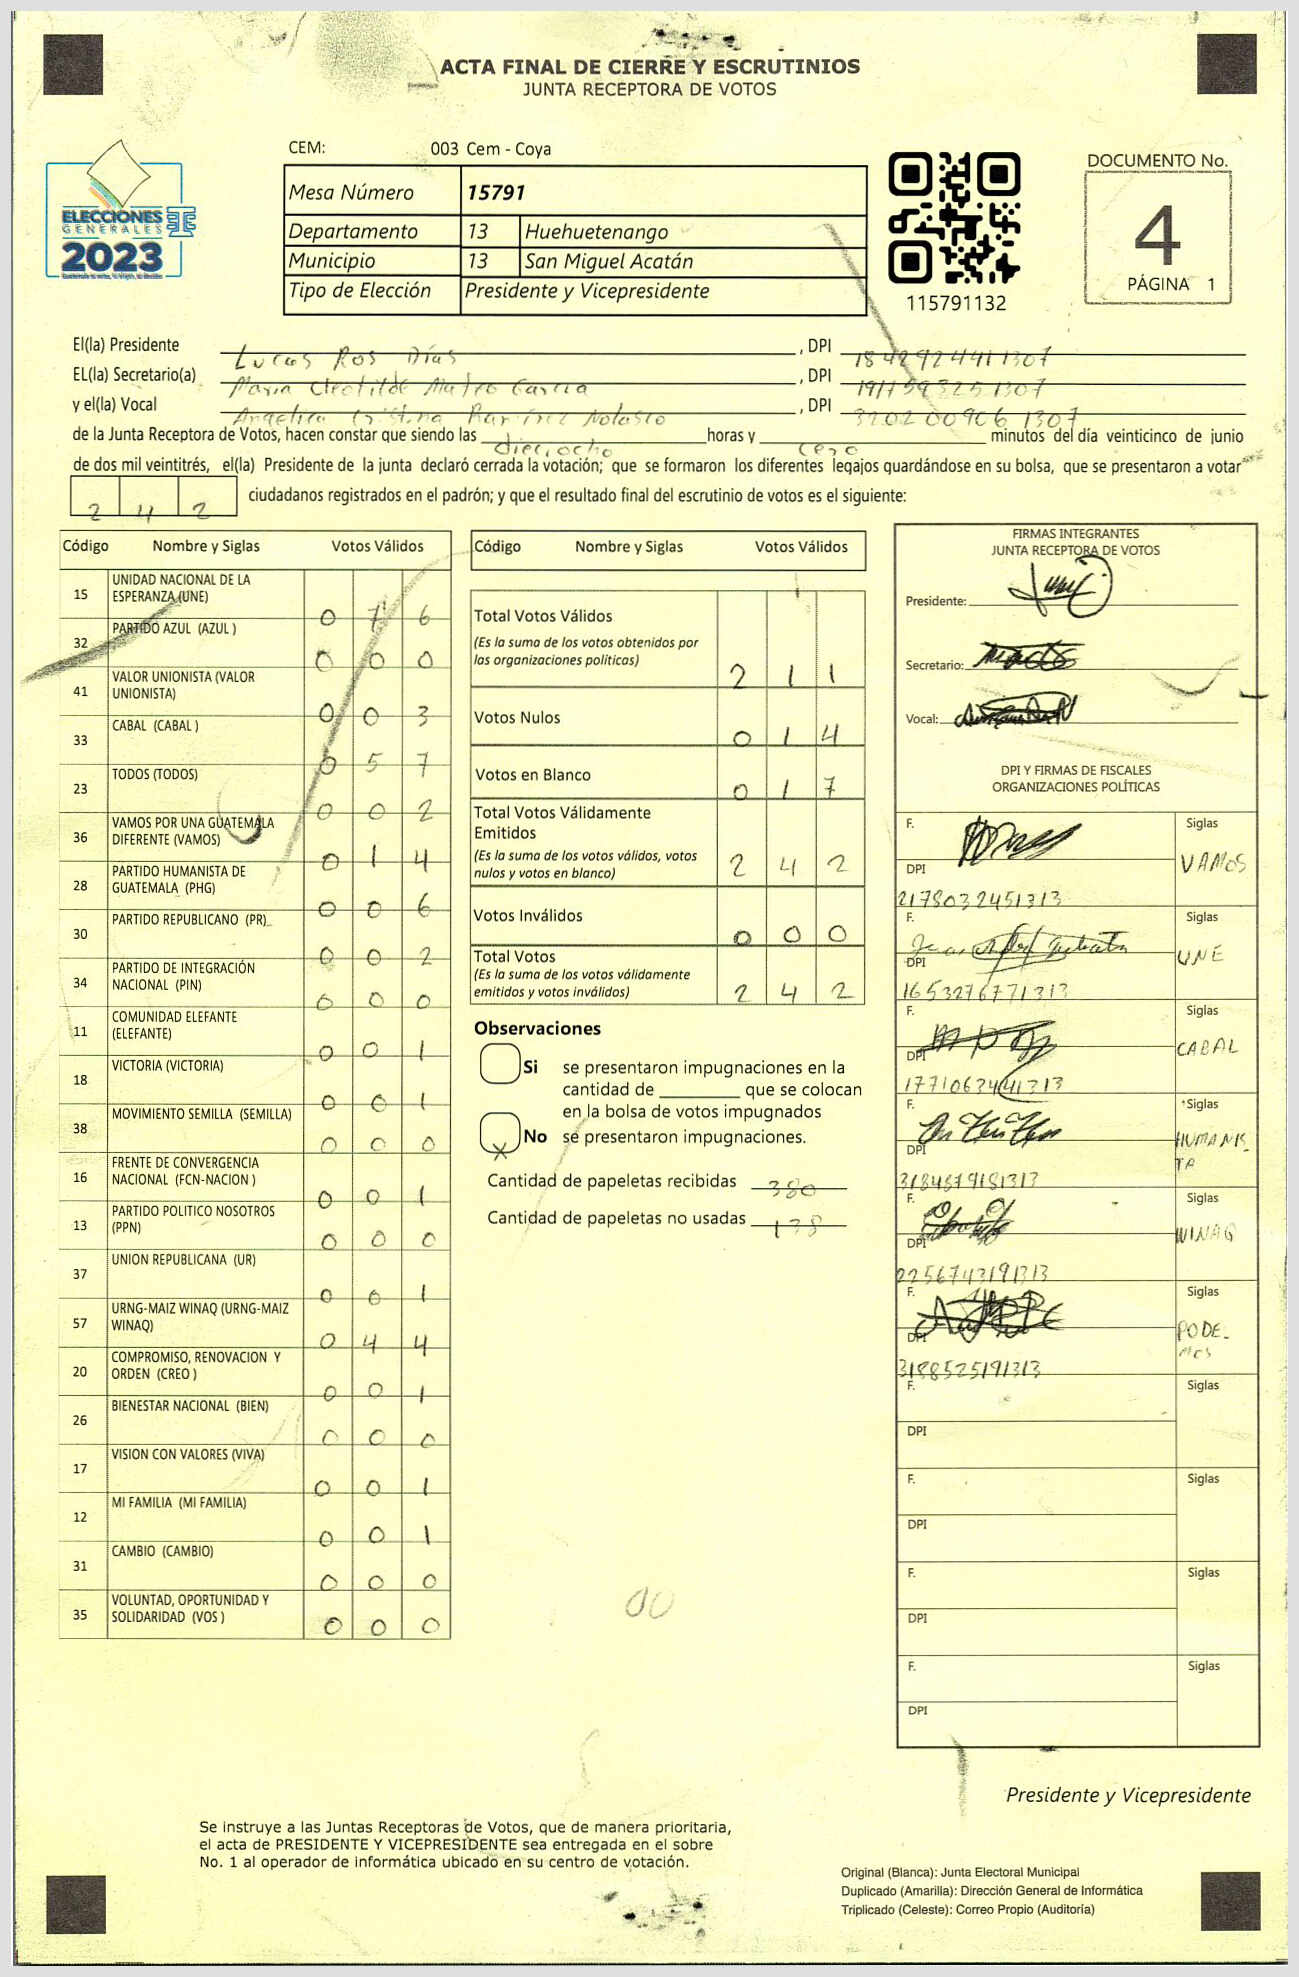 ACTA FINAL DE CIERRE Y ESCRUTINIOS
JUNTA RECEPTORA DE VOTOS
ELECCIONES
GENERALES
2023
CEM: 003 Cem - Coya
Mesa Número 15791
Departamento 13 Huehuetenango
Municipio 13 San Miguel Acatán
Tipo de Elección Presidente y Vicepresidente
115791132
DOCUMENTO No.
4
PÁGINA 1
El(la) Presidente Lucas Ros Días, DPI 1842924411307
EL(la) Secretario(a) Maria Cleotilde Mateo Garcia, DPI 1911593251307
y el(la) Vocal Angelica Cristina Ramírez Nolasco, DPI 3202009061307
de la Junta Receptora de Votos, hacen constar que siendo las dieciocho horas y cero minutos del día veinticinco de junio
de dos mil veintitrés, el(la) Presidente de la junta declaró cerrada la votación; que se formaron los diferentes legajos guardándose en su bolsa, que se presentaron a votar
242 ciudadanos registrados en el padrón; y que el resultado final del escrutinio de votos es el siguiente:
Código Nombre y Siglas Votos Válidos
15 UNIDAD NACIONAL DE LA
ESPERANZA (UNE) 0 7 6
32 PARTIDO AZUL (AZUL ) 0 0 0
41 VALOR UNIONISTA (VALOR
UNIONISTA) 0 0 3
33 CABAL (CABAL ) 0 5 7
23 TODOS (TODOS) 0 0 2
36 VAMOS POR UNA GUATEMALA
DIFERENTE (VAMOS) 0 1 4
28 PARTIDO HUMANISTA DE
GUATEMALA (PHG) 0 0 6
30 PARTIDO REPUBLICANO (PR) 0 0 2
34 PARTIDO DE INTEGRACIÓN
NACIONAL (PIN) 0 0 0
11 COMUNIDAD ELEFANTE
(ELEFANTE) 0 0 1
18 VICTORIA (VICTORIA) 0 0 1
38 MOVIMIENTO SEMILLA (SEMILLA) 0 0 0
16 FRENTE DE CONVERGENCIA
NACIONAL (FCN-NACION ) 0 0 1
13 PARTIDO POLITICO NOSOTROS
(PPN) 0 0 0
37 UNION REPUBLICANA (UR) 0 0 1
57 URNG-MAIZ WINAQ (URNG-MAIZ
WINAQ) 0 4 4
20 COMPROMISO, RENOVACION Y
ORDEN (CREO ) 0 0 1
26 BIENESTAR NACIONAL (BIEN) 0 0 0
17 VISION CON VALORES (VIVA) 0 0 1
12 MI FAMILIA (MI FAMILIA) 0 0 1
31 CAMBIO (CAMBIO) 0 0 0
35 VOLUNTAD, OPORTUNIDAD Y
SOLIDARIDAD (VOS ) 0 0 0
Código Nombre y Siglas Votos Válidos
Total Votos Válidos
(Es la suma de los votos obtenidos por
las organizaciones políticas) 2 1 1
Votos Nulos 0 1 4
Votos en Blanco 0 1 7
Total Votos Válidamente
Emitidos
(Es la suma de los votos válidos, votos
nulos y votos en blanco) 2 4 2
Votos Inválidos 0 0 0
Total Votos
(Es la suma de los votos válidamente
emitidos y votos inválidos) 2 4 2
Observaciones
Si se presentaron impugnaciones en la
cantidad de ________ que se colocan
en la bolsa de votos impugnados
X No se presentaron impugnaciones.
Cantidad de papeletas recibidas 380
Cantidad de papeletas no usadas 138
00
FIRMAS INTEGRANTES
JUNTA RECEPTORA DE VOTOS
Presidente:
Secretario:
Vocal:
DPI Y FIRMAS DE FISCALES
ORGANIZACIONES POLÍTICAS
F. Siglas
DPI VAMOS
2178032451313
F. Siglas
DPI UNE
1653276771313
F. Siglas
DPI CABAL
1771063441313
F. Siglas
DPI HUMANIS-
TA
3184879181313
F. Siglas
DPI WINAQ
2256743191313
F. Siglas
DPI PODE-
MOS
3188525191313
F. Siglas
DPI
F. Siglas
DPI
F. Siglas
DPI
F. Siglas
DPI
Presidente y Vicepresidente
Se instruye a las Juntas Receptoras de Votos, que de manera prioritaria,
el acta de PRESIDENTE Y VICEPRESIDENTE sea entregada en el sobre
No. 1 al operador de informática ubicado en su centro de votación.
Original (Blanca): Junta Electoral Municipal
Duplicado (Amarilla): Dirección General de Informática
Triplicado (Celeste): Correo Propio (Auditoría)